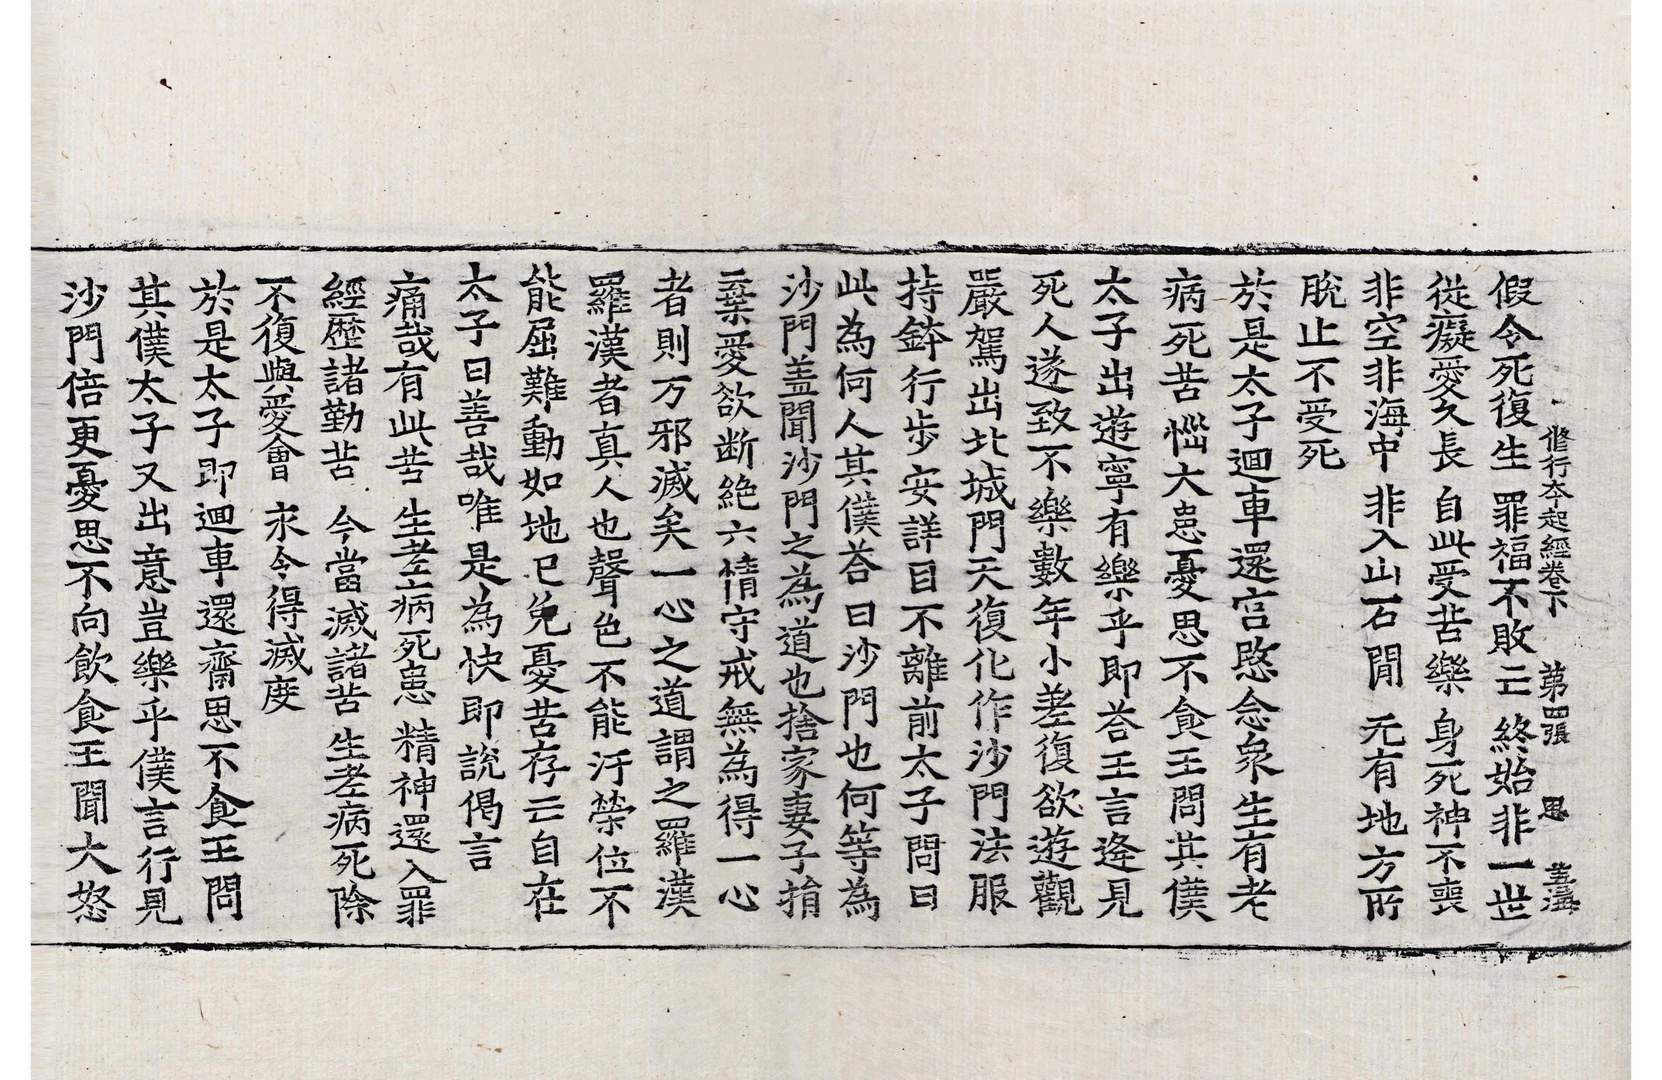 修行本起經卷下 第四張 思
假令死復生 罪福不敗亡 終始非一世
從癡愛久長 自此受苦樂 身死神不喪
非空非海中 非入山石閒 无有地方所
脫止不受死
於是太子迴車還宮愍念衆生有老
病死苦惱大患憂思不食王問其僕
太子出遊寧有樂乎即荅王言逢見
死人遂致不樂數年小差復欲遊觀
嚴駕出北城門天復化作沙門法服
持鉢行步安詳目不離前太子問曰
此為何人其僕荅曰沙門也何等為
沙門盖聞沙門之為道也捨家妻子捐
棄愛欲断絶六情守戒無為得一心
者則万邪滅矣一心之道謂之羅漢
羅漢者真人也聲色不能汙榮位不
能屈難動如地已免憂苦存亡自在
太子曰善哉唯是為快即說偈言
痛哉有此苦 生老病死患 精神還入罪
經歷諸勤苦 今當滅諸苦 生老病死除
不復與愛會 永令得滅度
於是太子即迴車還齋思不食王問
其僕太子又出意豈樂乎僕言行見
沙門倍更憂思不向飲食王聞大怒